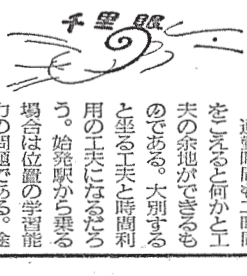 千里眼
をこえると何かと工
夫の余地ができるも
のである。大別する
と坐る工夫と時間利
用の工夫になるだろ
う。始発駅から乗る
場合は位置の学習能
力の問題である。途